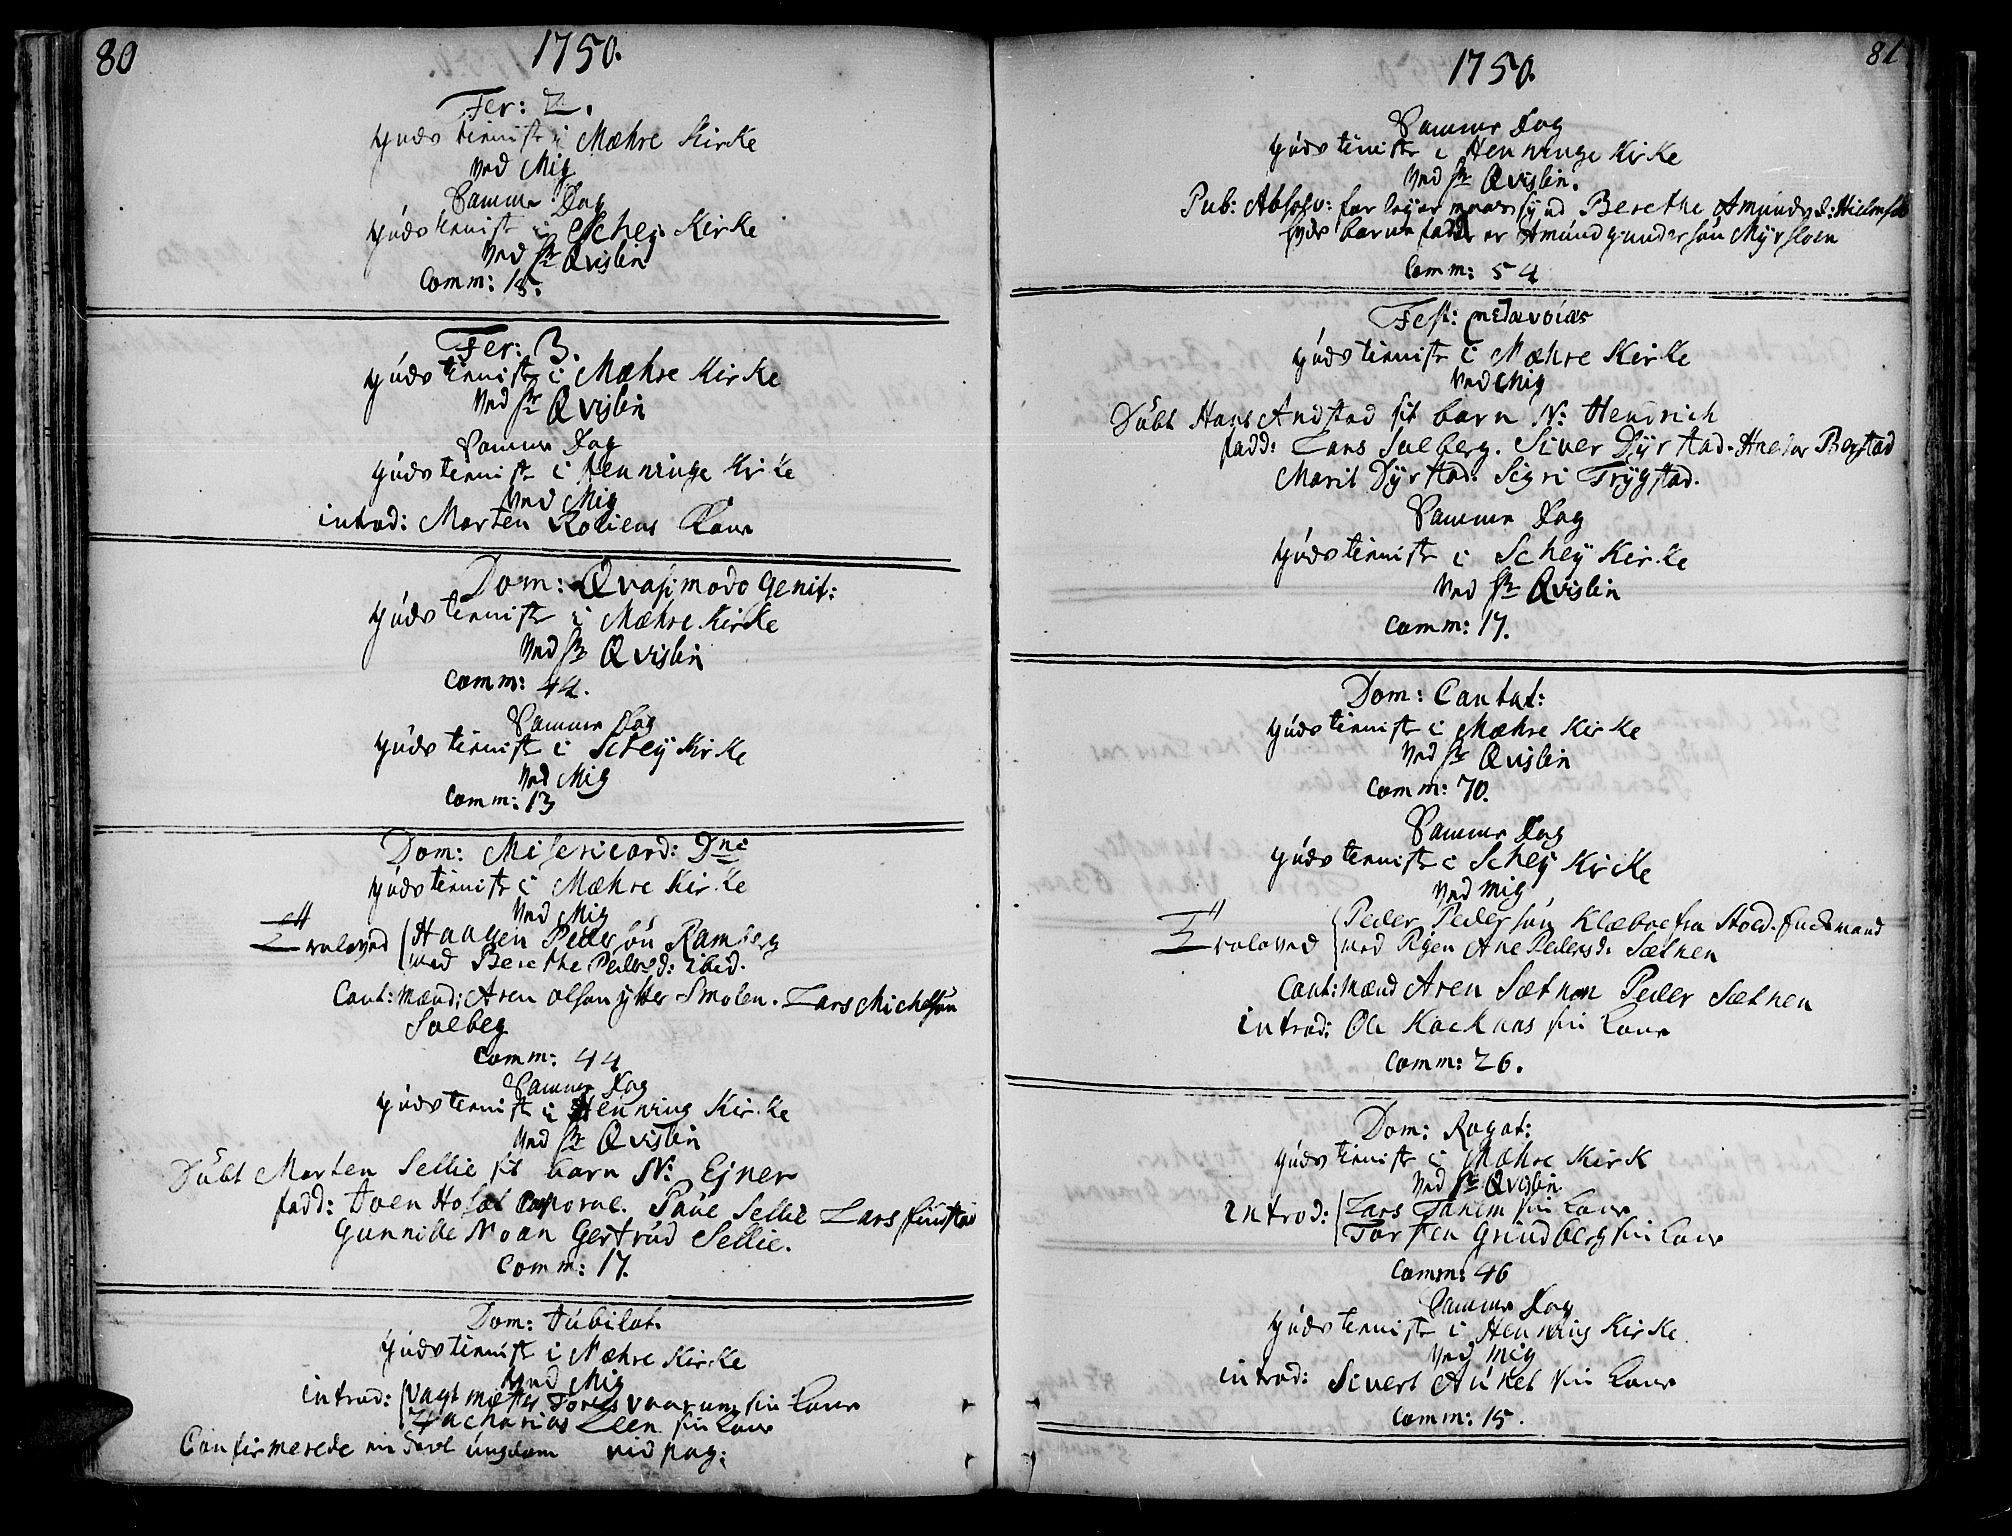 80
1750.
Fer: 2.
Guds tienist i Mæhre Kirke
Ved Mig
Samme Dag
Guds tienist i Schey Kirke
Ved Sr Qvislin
Comm: 15.
Fer: 3.
Guds tienist i Mæhre Kirke
Ved Sr Qvislin
Samme Dag
Guds tienist i Henninge Kirke
Ved Mig
introd: Morten Koliens Kone
Dom: Qvasimodo Genit:
Guds tienist i Mæhre Kirke
Ved Sr Qvislin
Comm: 44.
Samme Dag
Guds tienist i Schey Kirke
Ved Mig
Comm: 13
Dom: Misericord: Dni
Guds tienist i Mæhre Kirke
Ved Mig
Troloved Haagen Peder søn Ramberg
med Berethe Peders d: ibid.
Caut: Mænd: Aren Olsøn ytter Smolen. Lars Michelsøn
Solberg
Comm: 44
Samme Dag
Guds tienist i Henning Kirke
Ved Sr Qvislin
Døbt Morten Sellie sit barn N: Ejner
fadd: Joen Hofæl Caporal. Paue Sellie Lars finstad
Gunnilde Moan Gertrud Sellie.
Comm: 17.
Dom: Jubilat.
Guds tienist i Mæhre Kirke
Ved Mig
introd: Vagtmester Tores Vaarum sin Kone
Zacharias Leen sin Kone
Confirmerede ungdom vid pag:
81
1750.
Samme Dag
Guds tienist i Henninge Kirke
Ved Sr Qvislin.
Pub: Absolv: for lejermaals synd Berethe Amunds d:
hvis barne fader er Amund Gundersøn Myrsloen
Comm: 54
Fest: μετανοίας
Guds tienist i Mæhre Kirke
Ved Mig
Døbt Hans Andstad sit barn N: Hendrich
fadd: Lars Solberg. Siver Dyrstad. Anders Bogstad
Marit Dyrstad. Sigri Trygstad.
Samme Dag
Guds tienist i Schey Kirke
Ved Sr Qvislin
Comm: 17.
Dom: Cantat:
Guds tienist i Mæhre Kirke
Ved Sr Qvislin
Comm: 70.
Samme Dag
Guds tienist i Schey Kirke
Ved mig
Troloved Peder Peder søn Klæboe fra Stoed. Enkemand
med Pigen Ane Peders d: Sætnen
Caut: Mænd Aren Sætnen Peder Sætnen
introd: Ole Kockans sin Kone
Comm: 26.
Dom: Rogat:
Guds tienist i Mæhre Kirk
Ved Sr Qvislin
introd: Lars Tanem sin Kone
Torsten Grundberg sin Kone
Comm: 46
Samme Dag
Guds tienist i Henning Kirke
Ved mig
introd: Sivert Aunet sin Kone
Comm: 15.